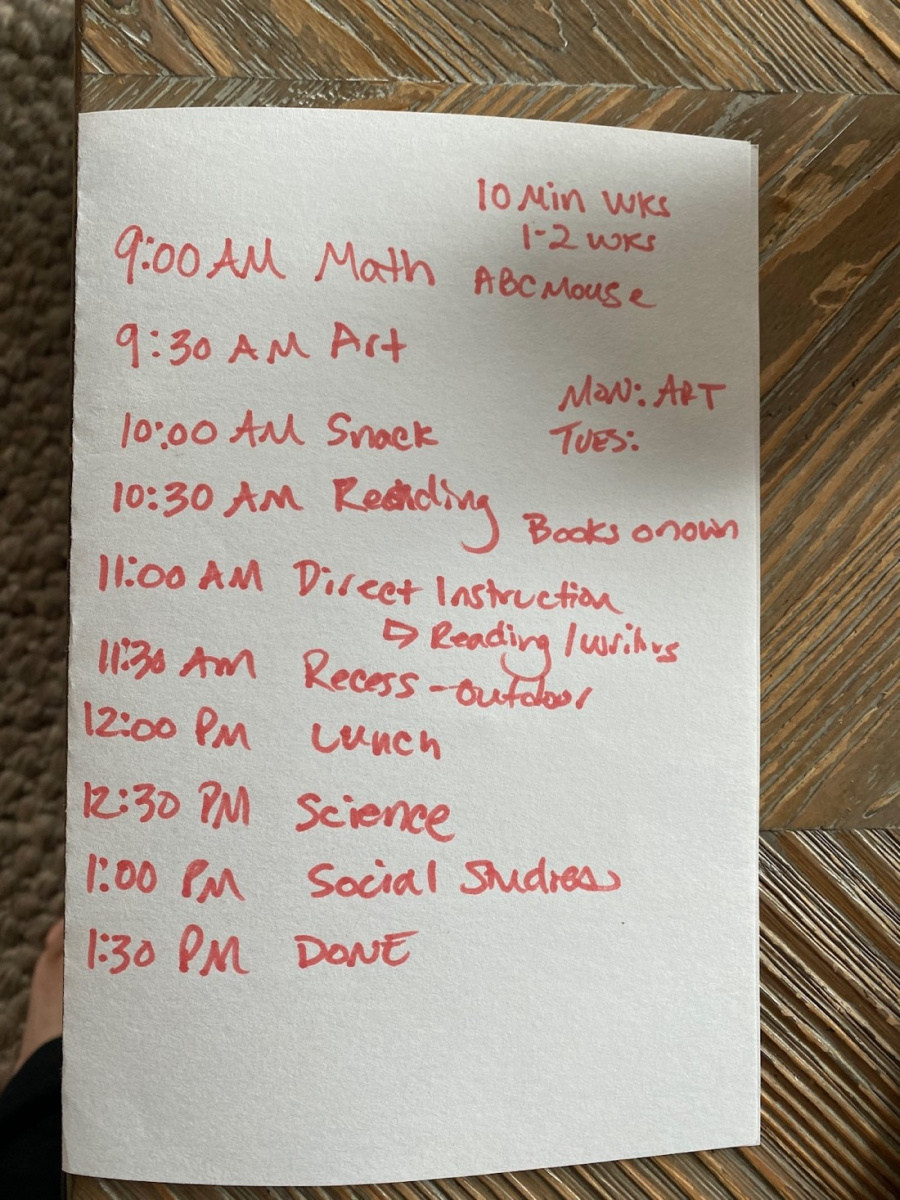 10 Min WKS
1-2 WKS
9:00 AM Math ABC Mouse
9:30 AM Art
MON: ART
10:00 AM Snack TUES:
10:30 AM Reading Books on own
11:00 AM Direct Instruction
Reading / writing
11:30 AM Recess - outdoor
12:00 PM Lunch
12:30 PM Science
1:00 PM Social Studies
1:30 PM DONE